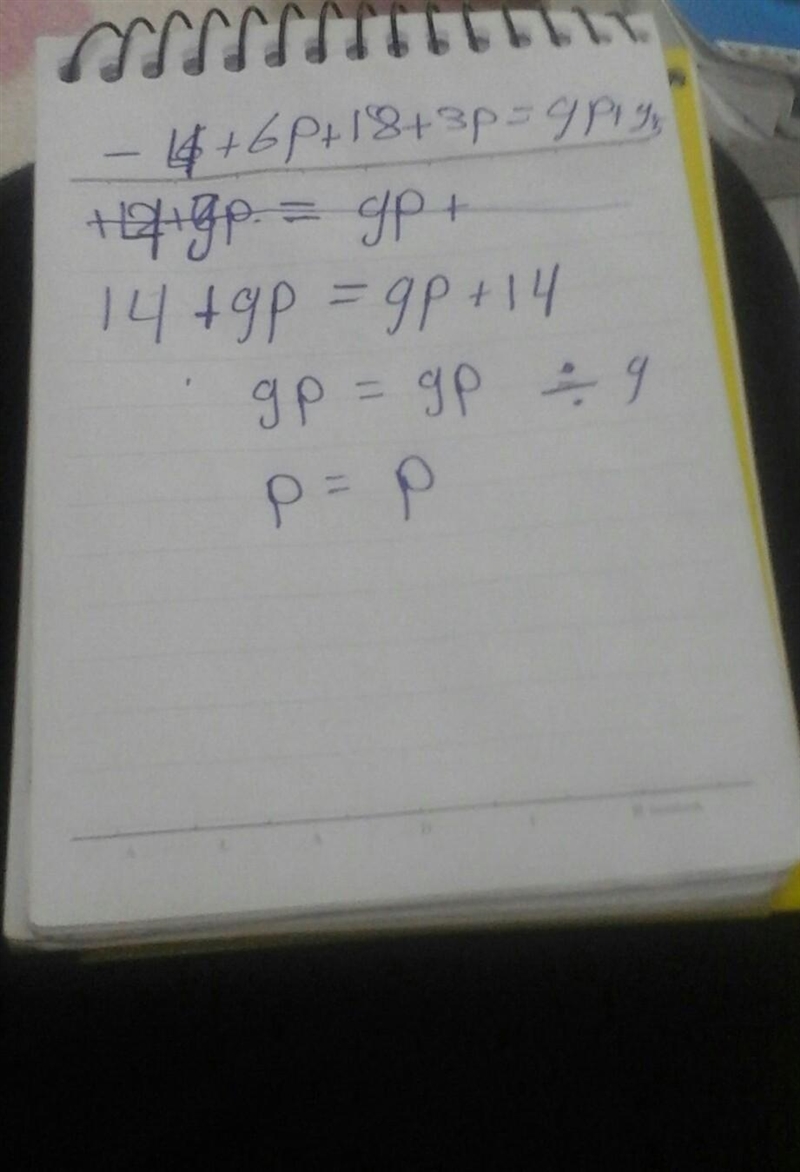 - 4 +6p+18+3p=9p+
+9p = 9p+
14 +9p = 9p+14
9p = 9p ÷ 9
p = p